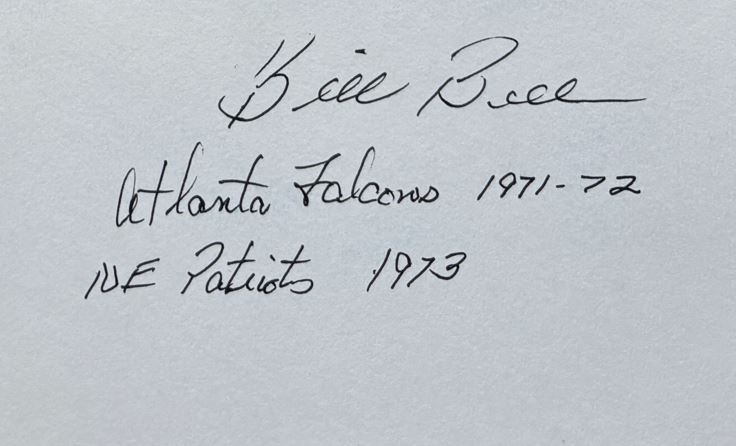 Bill Bell
Atlanta Falcons 1971-72
NE Patriots 1973